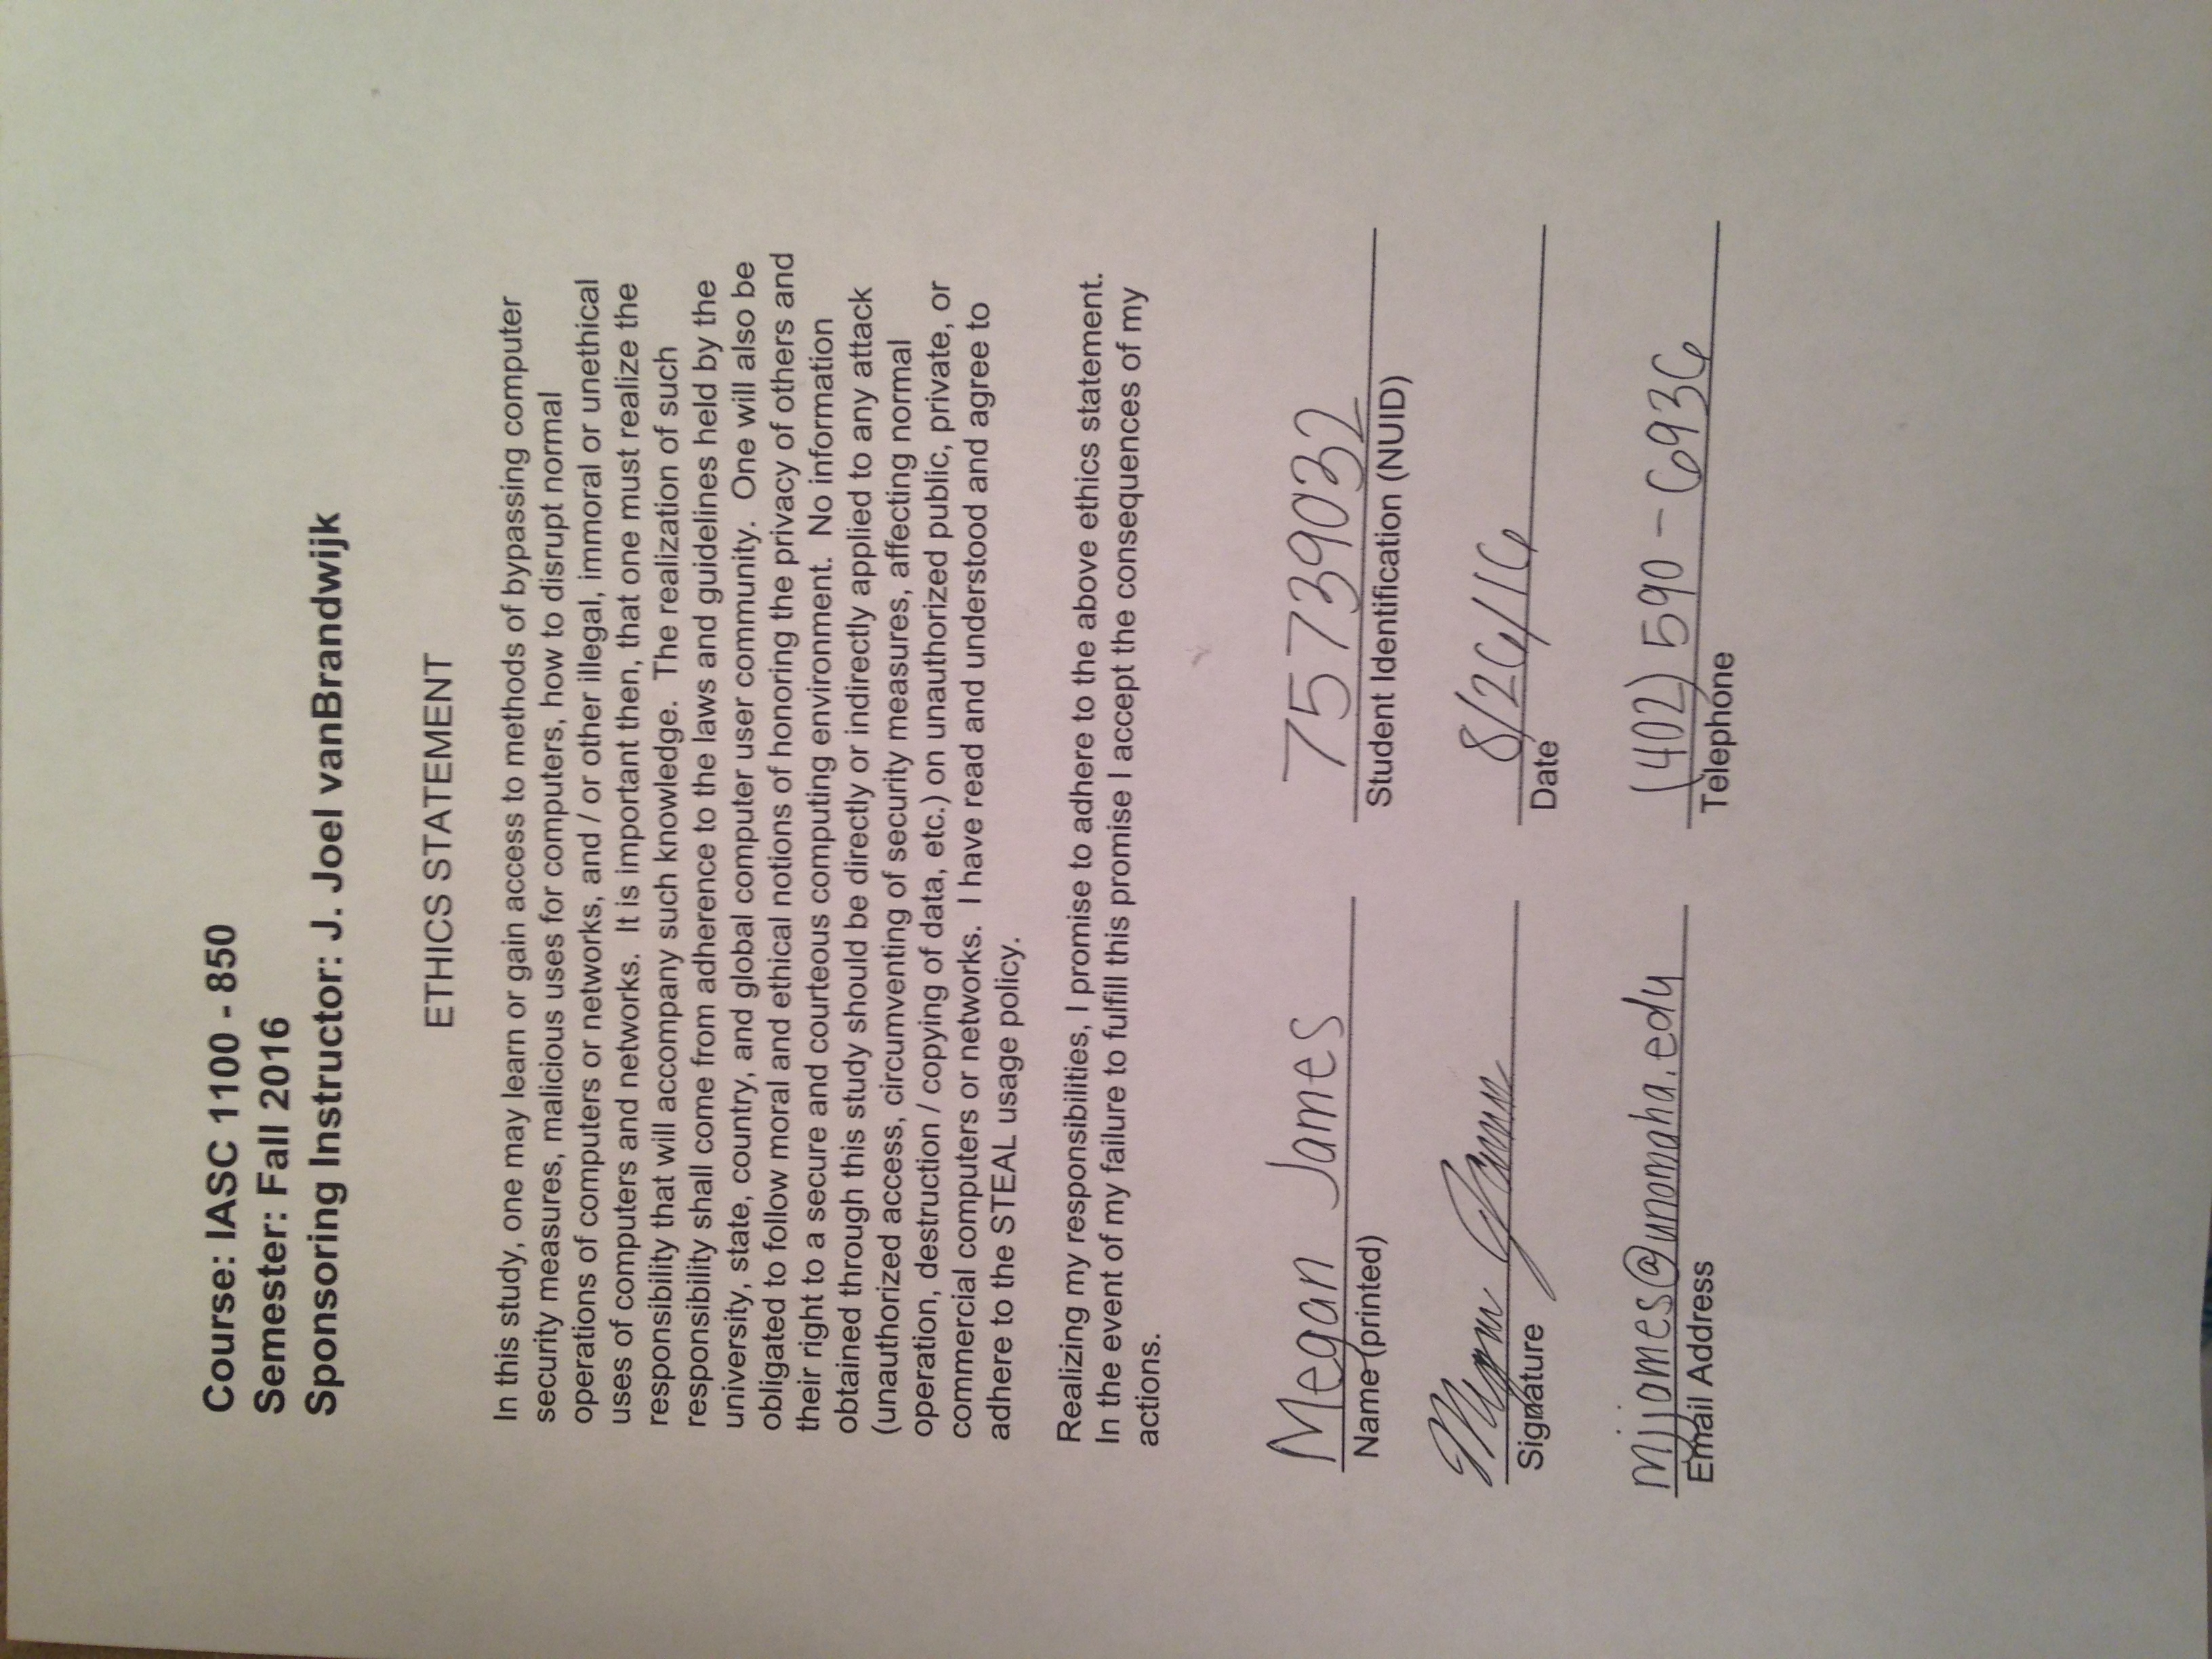 Course: IASC 1100 - 850
Semester: Fall 2016
Sponsoring Instructor: J. Joel vanBrandwijk
ETHICS STATEMENT
In this study, one may learn or gain access to methods of bypassing computer
security measures, malicious uses for computers, how to disrupt normal
operations of computers or networks, and / or other illegal, immoral or unethical
uses of computers and networks.  It is important then, that one must realize the
responsibility that will accompany such knowledge.  The realization of such
responsibility shall come from adherence to the laws and guidelines held by the
university, state, country, and global computer user community.  One will also be
obligated to follow moral and ethical notions of honoring the privacy of others and
their right to a secure and courteous computing environment.  No information
obtained through this study should be directly or indirectly applied to any attack
(unauthorized access, circumventing of security measures, affecting normal
operation, destruction / copying of data, etc.) on unauthorized public, private, or
commercial computers or networks.  I have read and understood and agree to
adhere to the STEAL usage policy.
Realizing my responsibilities, I promise to adhere to the above ethics statement.
In the event of my failure to fulfill this promise I accept the consequences of my
actions.
Megan James 75739032
Name (printed) Student Identification (NUID)
Megan James 8/26/16
Signature Date
mjjames@unomaha.edu (402) 590-6936
Email Address Telephone